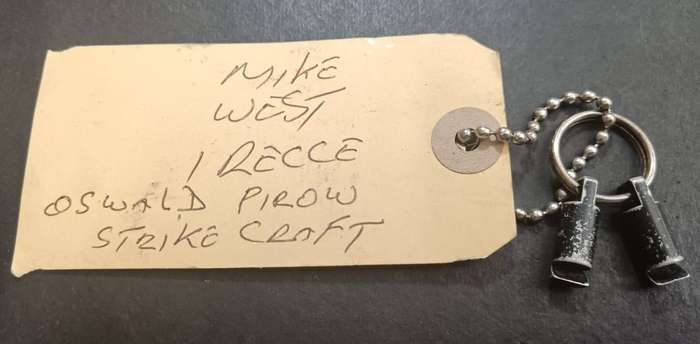 MIKE
WEST
1 RECCE
OSWALD PIROW
STRIKE CRAFT